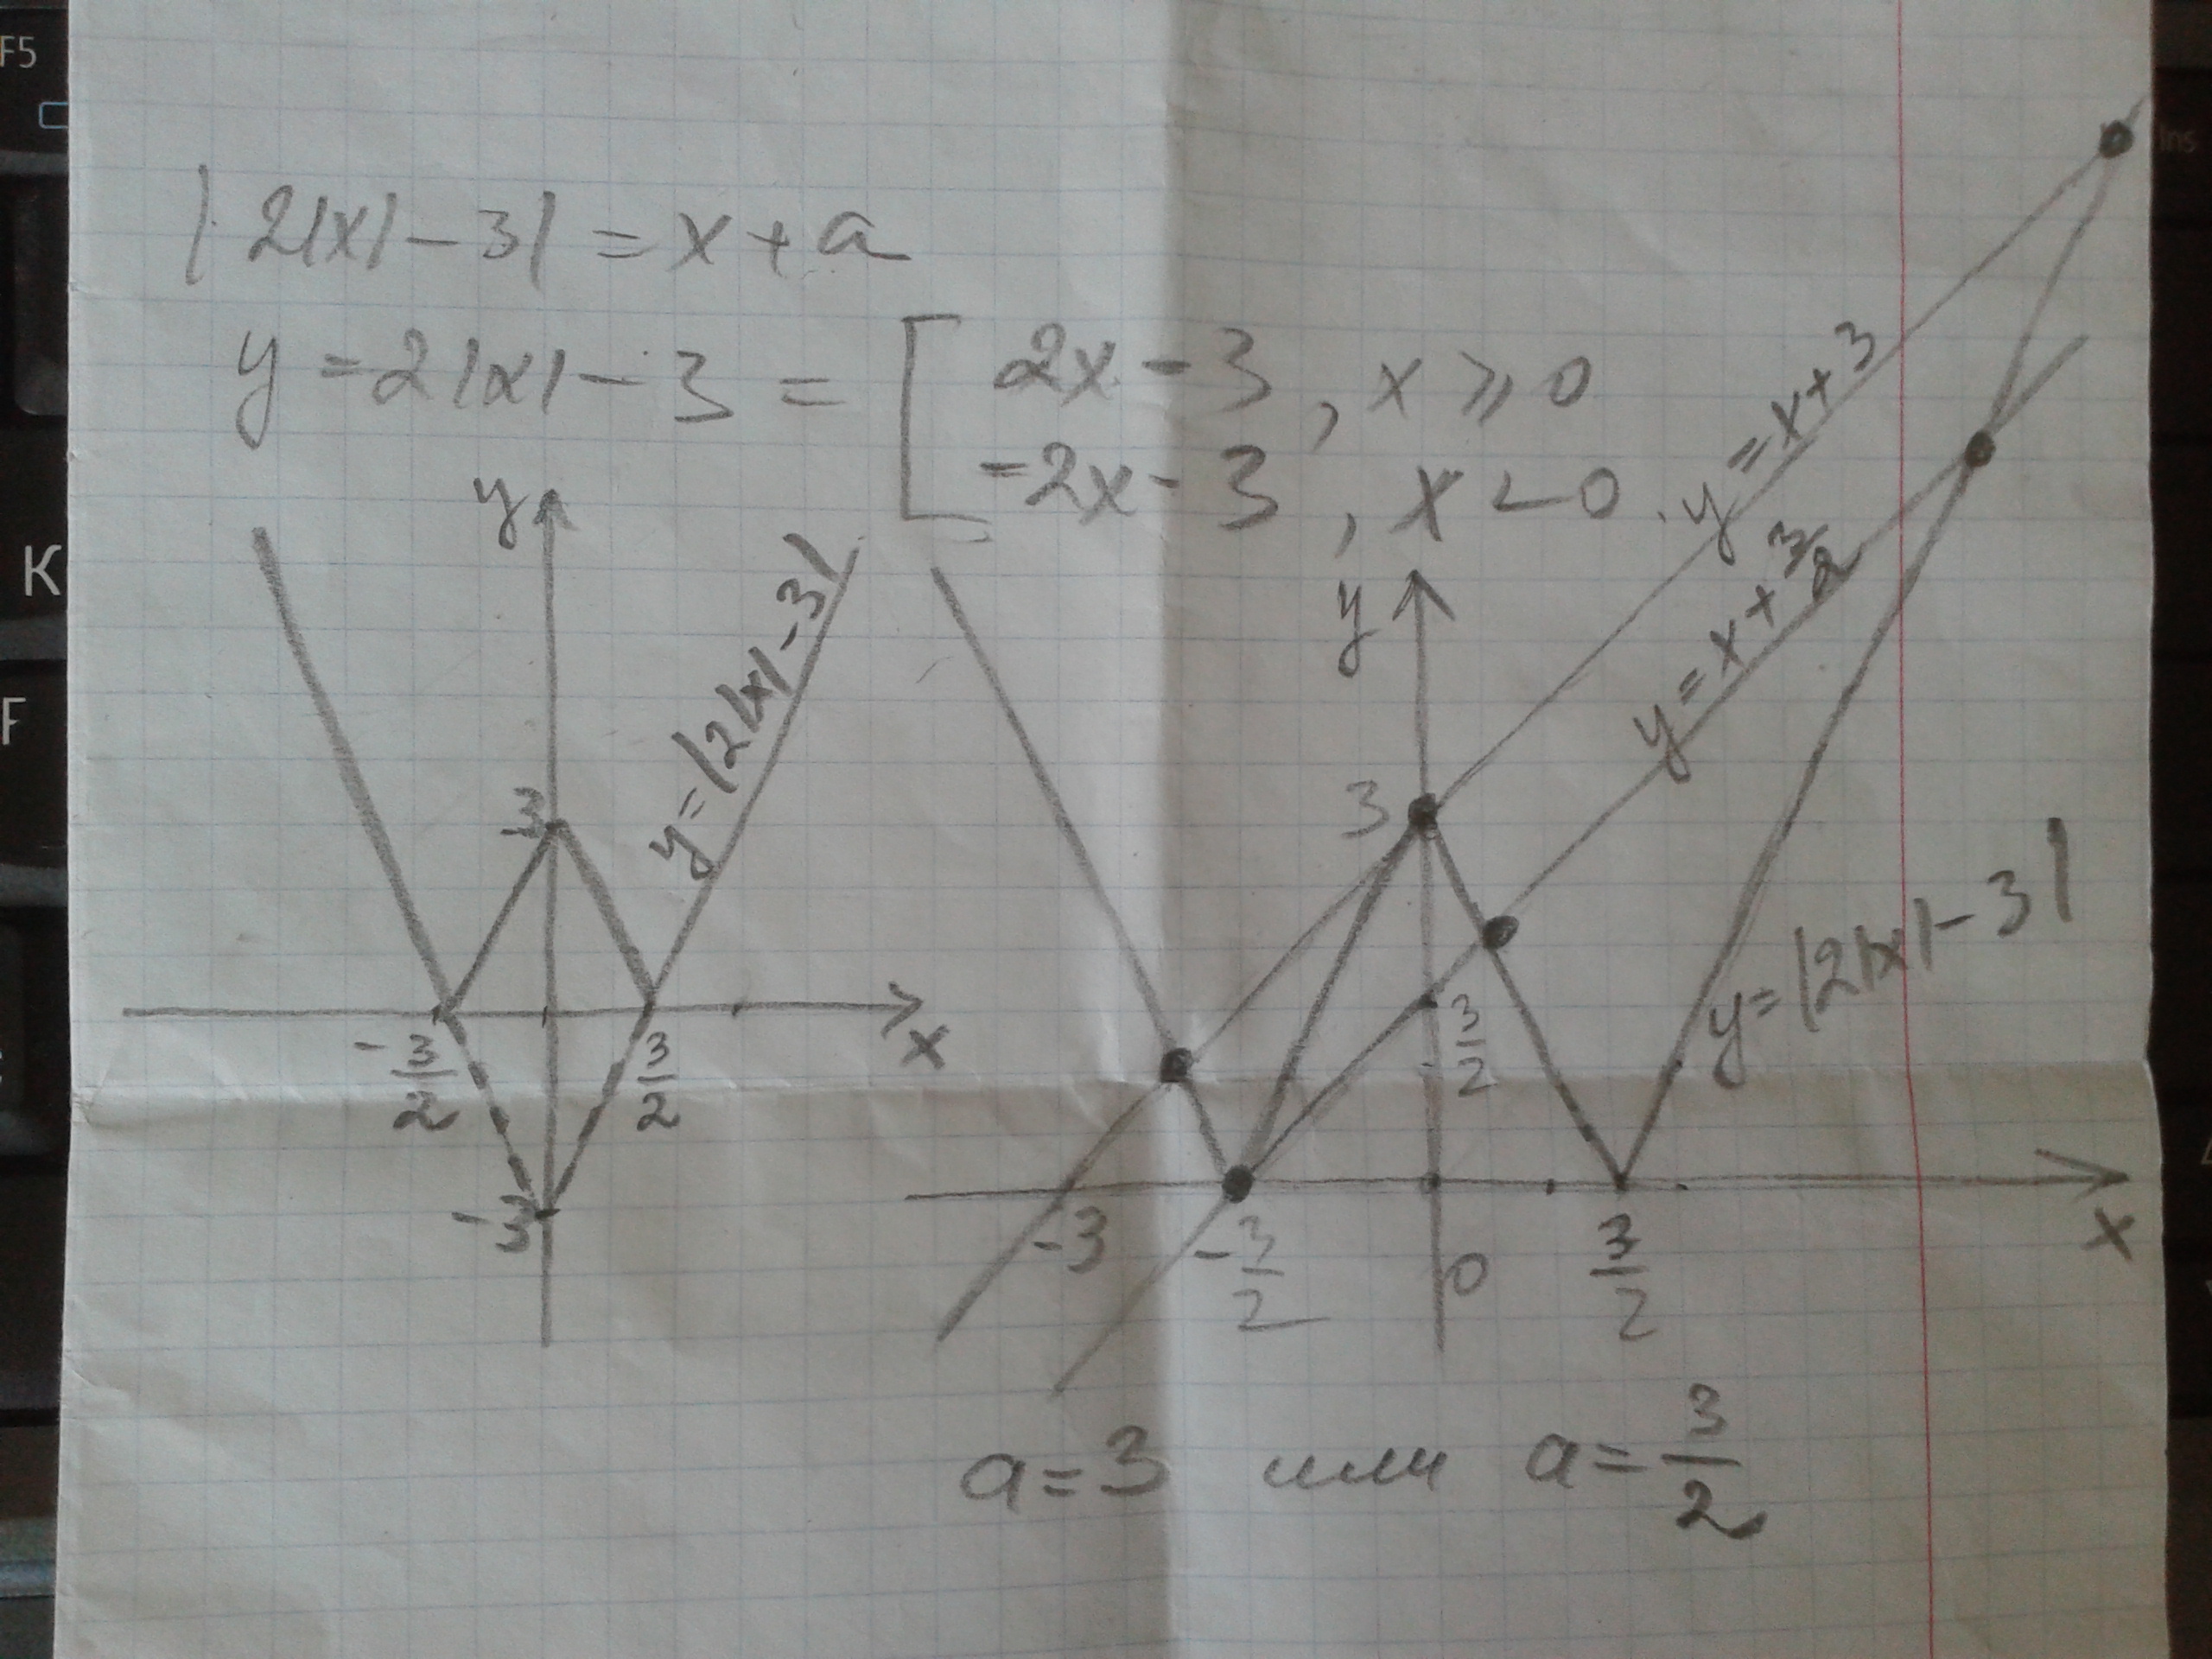 |2|x|-3|=x+a
y=2|x|-3=[2x-3, x⩾0
-2x-3, x<0
y
3
y=|2|x|-3|
-3/2
3/2
x
-3
y
y=x+3
y=x+3/2
3
3/2
y=|2|x|-3|
-3
-3/2
0
3/2
x
a=3 или a=3/2
F5
Ins
K
F